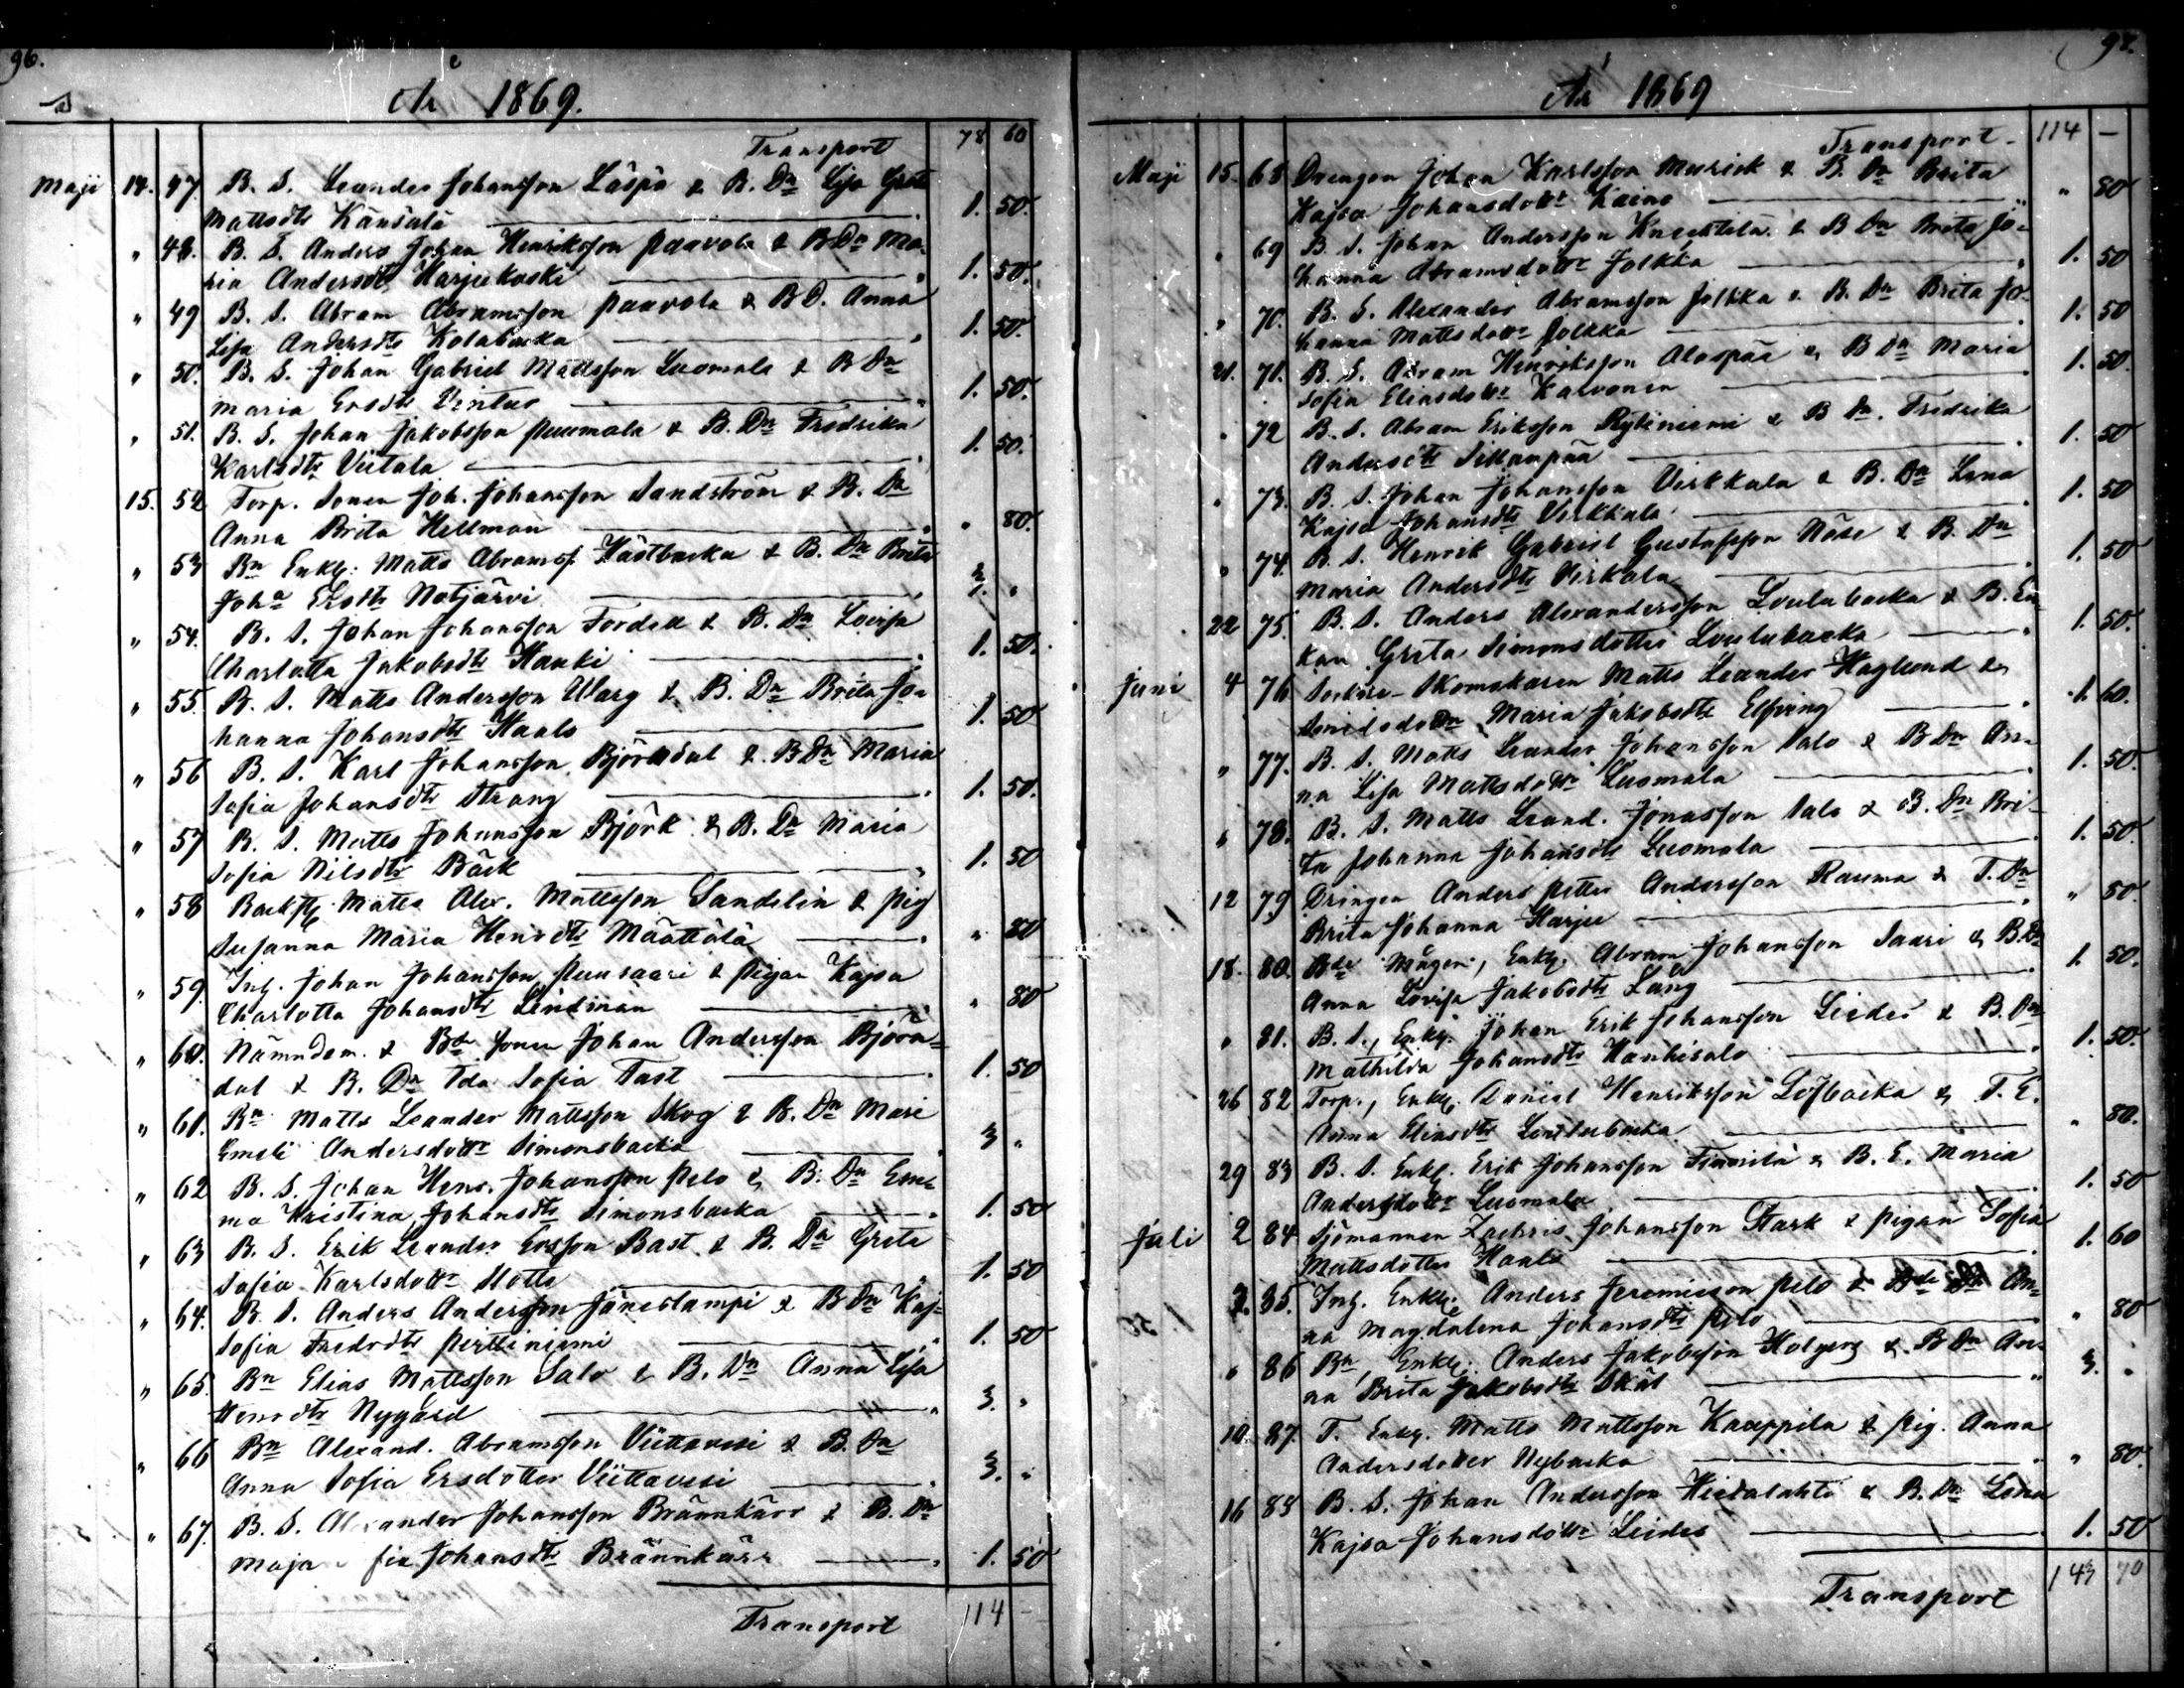 96.
År 1869.
Transport 78 60
Maji 14. 47. B. S. Leander Johansson Läspä & B. Dn Lisa Greta
Mattsdtr Känsälä 1. 50.
" 48. B. S. Anders Johan Henriksson Paavola & B Dn Ma-
ria Andersdtr Harjukoski 1. 50.
" 49 B. S. Abram Abramsson Paavola & B D. Anna
Lisa Andersdtr Kolabacka 1. 50.
" 50. B. S. Johan Gabriel Mattsson Luomala & B Dn
Maria Ersdtr Vintus 1. 50.
" 51. B. S. Johan Jakobsson Puumala & B. Dn Fredrika
Karlsdtr Viitala 1. 50.
15. 52 Torp. Sonen Joh. Johansson Sandström & B. Dn
Anna Brita Hellman " 80.
" 53 Bn Enkl: Matts Abramss. Hästbacka & B. Dn Brita
Joha Ersdtr Notjärvi 3. "
" 54. B. S. Johan Johansson Fordell & B. Dn Lovisa
Charlotta Jakobsdtr Hauki 1. 50.
" 55. B. S. Matts Andersson Warg & B. Dn Brita Jo-
hanna Johansdtr Haals 1. 50
" 56 B. S. Karl Johansson Björndal & B Dn Maria
Sofia Johansdtr Strang 1. 50.
" 57 B. S. Matts Johansson Björk & B. Dn Maria
Sofia Nilsdtr Bäck 1. 50
" 58 Matts Alex. Mattsson Sandelin & pig
Susanna Maria Henrdtr Määttälä " 80
" 59. Inh. Johan Johansson Puusaari & pigan Kajsa
Charlotta Johansdtr Lindman " 80
" 60. Nämndem. & Bde Sonen Johan Andersson Björn-
dal & B. Dn Ida Sofia Fast 1. 50
" 61. Bn Matts Leander Mattsson Skog & B. Dn Mari
Emeli Andersdottr Simonsbacka 3 "
" 62 B. S. Johan Henr. Johansson Pelo & B. Dn Em-
ma Kristina Johansdtr Simonsbacka 1. 50
" 63 B. S. Erik Leander Ersson Bast & B. Dn Greta
Sofia Karlsdottr Slotte 1. 50
" 64. B. S. Anders Andersson Jäneslampi & B Dn Kaj-
Sofia Fredrdtr Perttiniemi 1. 50
" 65. Bn Elias Mattsson Salo & B. Dn Anna Lisa
Henrdtr Nygård 3. "
" 66 Bn Alexand. Abramsson Viittavesi & B. Dn
Anna Sofia Ersdotter Viittavesi 3. "
" 67. B. S. Alexander Johansson Brännkärr & B. Dn
Maja fia Johansdtr Brännkärr 1. 50
Transport 114 -
97.
År 1869
Transport 114 —
Maji 15. 68 Drengen Johan Karlsson Murick & B. Dn Brita
Kajsa Johansdottr Kainu " 80
" 69 B. S. Johan Andersson Knecktilä & B Dn Brita Jo-
hanna Abramsdottr Jolkka 1. 50
" 70. B. S. Alexander Abramsson Jolkka & B. Dn Brita Jo-
hanna Mattsdottr Jolkka 1. 50
21. 71. B. S. Abram Henriksson Alaspää & B Dn Maria
Sofia Eliasdottr Karvonen 1. 50.
" 72 B. S. Abram Eriksson Rytiniemi & B Dn. Fredrika
Andersdtr Sillanpää 1. 50
" 73. B. S. Johan Johansson Virkkala & B. Dn Lena
Kajsa Johansdtr Virkkala 1. 50
" 74. B. S. Henrik Gabriel Gustafsson Näse & B. Dn
Maria Andersdtr Virkala 1. 50
22 75. B. S. Anders Alexandersson Loulubacka & B. En-
kan Greta Simonsdotter Loulubacka 1. 50.
Juni 4 76 Sockne-Skomakaren Matts Leander Haglund &
Smidsdottr Maria Jakobsdtr Elfving 1. 60.
" 77. B. S. Matts Leander Johansson Salo & B Dn An-
na Lisa Mattsdottr Luomala 1. 50.
" 78. B. S. Matts Leand. Jonasson Salo & B. Dn Bri-
ta Johanna Johansdtr Luomala 1. 50
12 79 Drängen Anders Petter Andersson Rauma & T. Dn
Brita Johanna Harju " 80.
18. 80. Bde Mågen, Enkl. Abram Johansson Saari & B. Dn
Anna Lovisa Jakobsdtr Lång 1. 50.
" 81. B. S., Enkl. Johan Erik Johansson Lieder & B. Dn
Mathilda Johansdtr Kanhisalo 1. 50.
26 82 Torp., Enkl. Daniel Henriksson Löfbacka & T. E.
Anna Eliasdtr Loulubacka " 80.
29 83 B. S. Enkl. Erik Johansson Finnilä & B. E. Maria
Andersdottr Luomala 1. 50
Juli 2 84 Sjömannen Zachris Johansson Stark & pigan Sofia
Mattsdotter Haals 1. 60
3. 85. Inh. Enkl. Anders Jeremiasson Pelo & Bde Dn An-
na Magdalena Johansdtr Pelo " 80
" 86 Bn, Enkl. Anders Jakobsson Holgers & B Dn An-
na Brita Jakobsdtr Skåt 3. "
10. 87. T. Enkl. Matts Mattsson Kaappila & pig. Anna
Andersdotter Nybacka " 80.
16 88 B. S. Johan Andersson Hietalahti & B. Dn Lena
Kajsa Johansdottr Lieder 1. 50
Transport 143 70